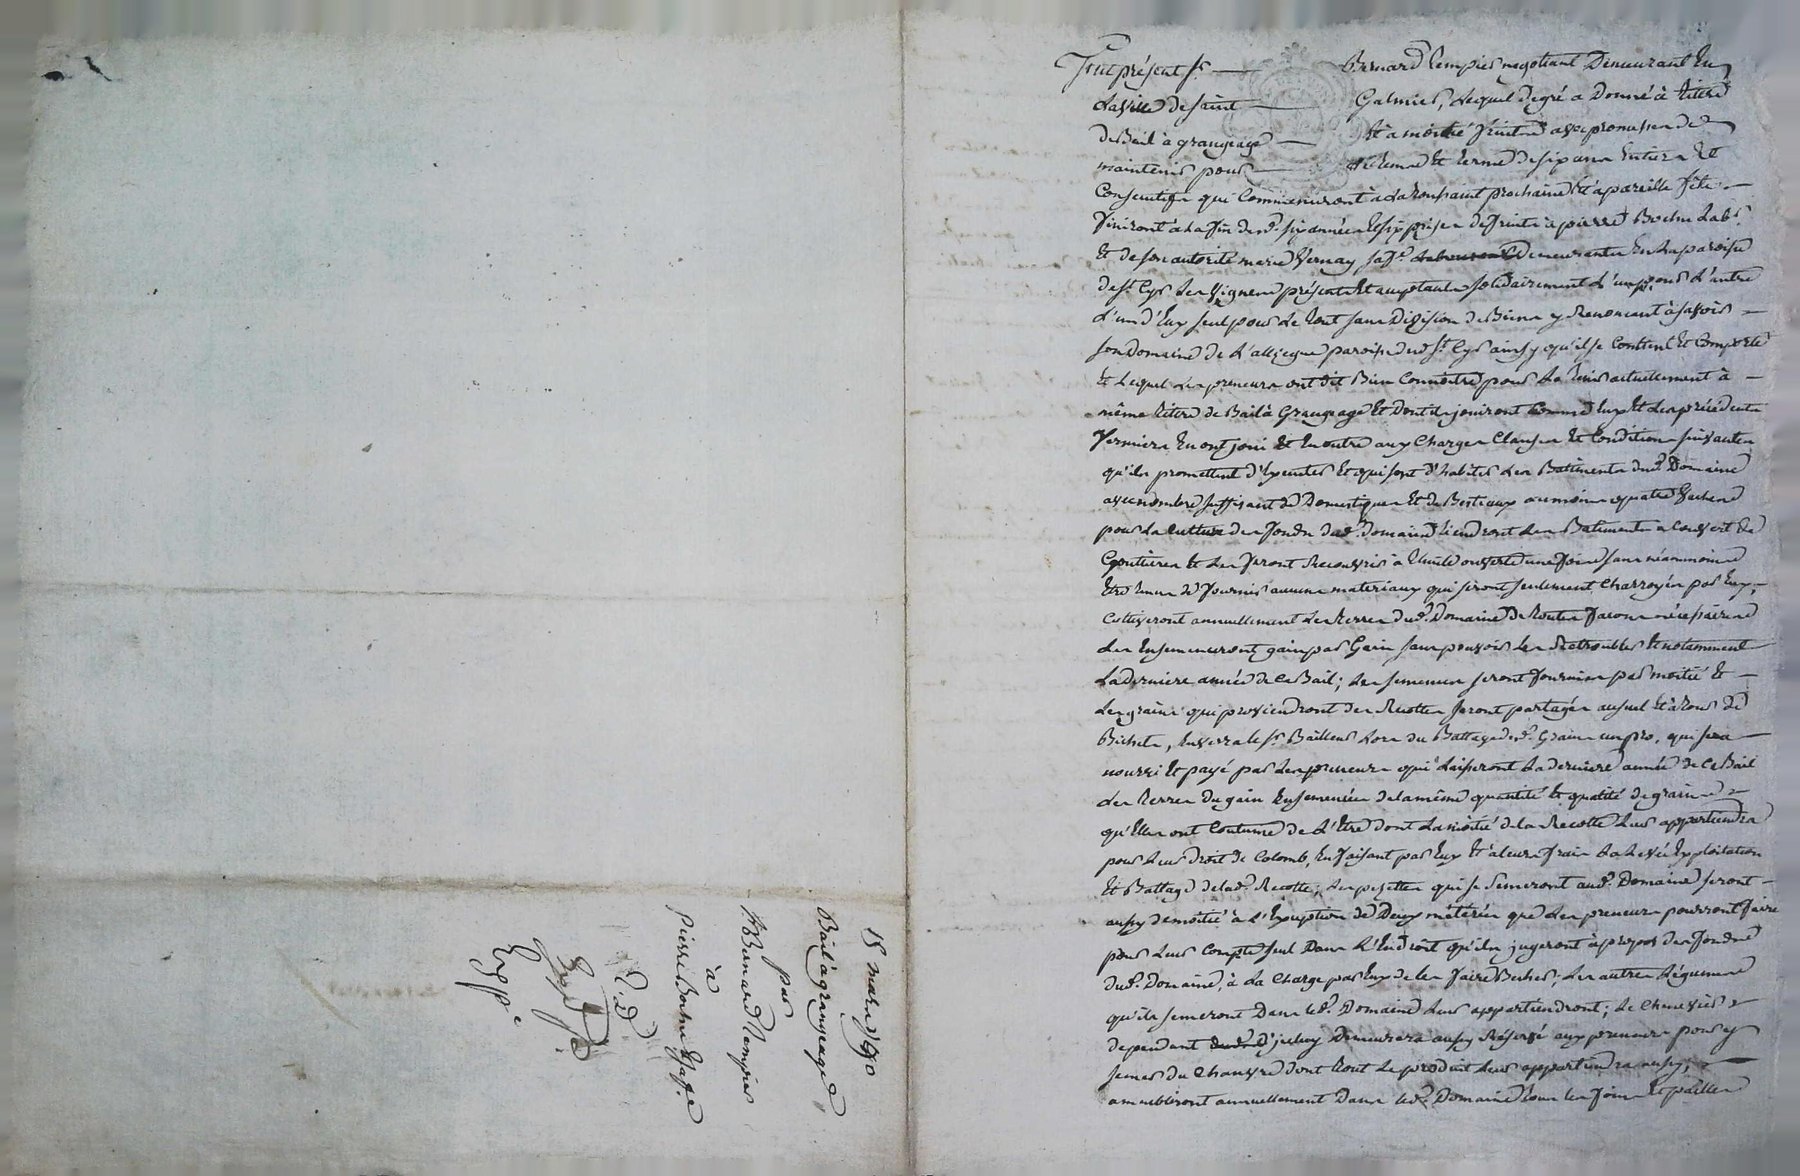 Fut présent sr. Bernard Rempier negotiant Demeurant En
La ville de saint Galmier, Lequel de gré a Donné à titre
de Bail à grangeage Et à moitié fruitte avec promesse de
maintenir pour Le temps Et terme de six ans Entiers Et
Consecutifs qui Commenceront à La Toussaint prochaine Et a pareille fête
finiront à La fin desd. six années Et six prises de fruits à pierre Boché Labr.
Et de son autorité marie Vernay sa fe. Demeurants En La paroisse
de st. Cyr Les Vignes présents Et acceptants solidairement L'un pour L'autre
L'un d'Eux seul pour Le tout sans Division de Biens y Renoncant à savoir
son Domaine de paroisse dud st. Cyr ainsy qu'il se Contient Et Comporte
Et Lequel Les preneurs ont dit Bien Connoitre pour Le tenir actuellement à
même titre de Bail à Grangeage Et Dont ils jouiront Comme Eux Et Les précédents
fermiers En ont joui Et En outre aux Charges Clauses Et Conditions suivantes
qu'ils promettent d'Executer Et qui sont d'habiter Les Batiments dud. Domaine
avec nombre suffisant de Domestiques Et de Bestiaux au moins quatre Vaches
pour La culture des fonds dud. domaine tiendront Les Batiments a Couvert de
Goutieres Et Les feront Recouvrir à thuile ouverte une fois sans néanmoins
Etre tenus de fournir aucuns materiaux qui seront seulement Charroyés par Eux,
Cultiveront annuellement Les terres dud. Domaine De toutes facons nécessaires
Les Ensemenceront gain par Gain sans pouvoir Les Retroubler Et notamment
La derniere année de ce Bail; Les semences seront fournies par moitié Et
Les grains qui proviendront des Recoltes seront partagés au suel Et à tour de
Bichets, Enverra le sr. Bailleur Lors du Battage desd. Grains un pro. qui sera
nourri Et payé par Les preneurs qui Laisseront La derniere année de ce Bail
Les terres du gain Ensemencées de la même quantité Et qualité de grains
qu'Elles ont Coutume de L'Etre dont La moitié de la Recolte Leur appartiendra
pour Leur droit de Colomb, En faisant par Eux Et a Leurs frais La Levée Exploitation
Et Battage de lad. Recolte; Les pesettes qui se Semeront aud. Domaine seront
aussy de moitié à L'Exception de Deux méterées que Les preneurs pourront faire
pour Leur Compte seul Dans L'Endroit qu'ils jugeront à propos des fonds
dud. Domaine, à La Charge par Eux de les faire Becher; Les autres Légumes
qu'ils semeront Dans led. Domaine Leur appartiendront; Le Chenevier
dependant d'icelluy Demeurera aussy Réservé aux preneurs pour y
semer du Chanvre dont tout Le produit Leur appartiendra aussy;
ameubliront annuellement Dans led. Domaine tous les foins Et pailles
18 mars 1790
Bail à grangeage
par
sr Bernard Rempier
à
Pierre Boché Et sa fe
R. d
Expé